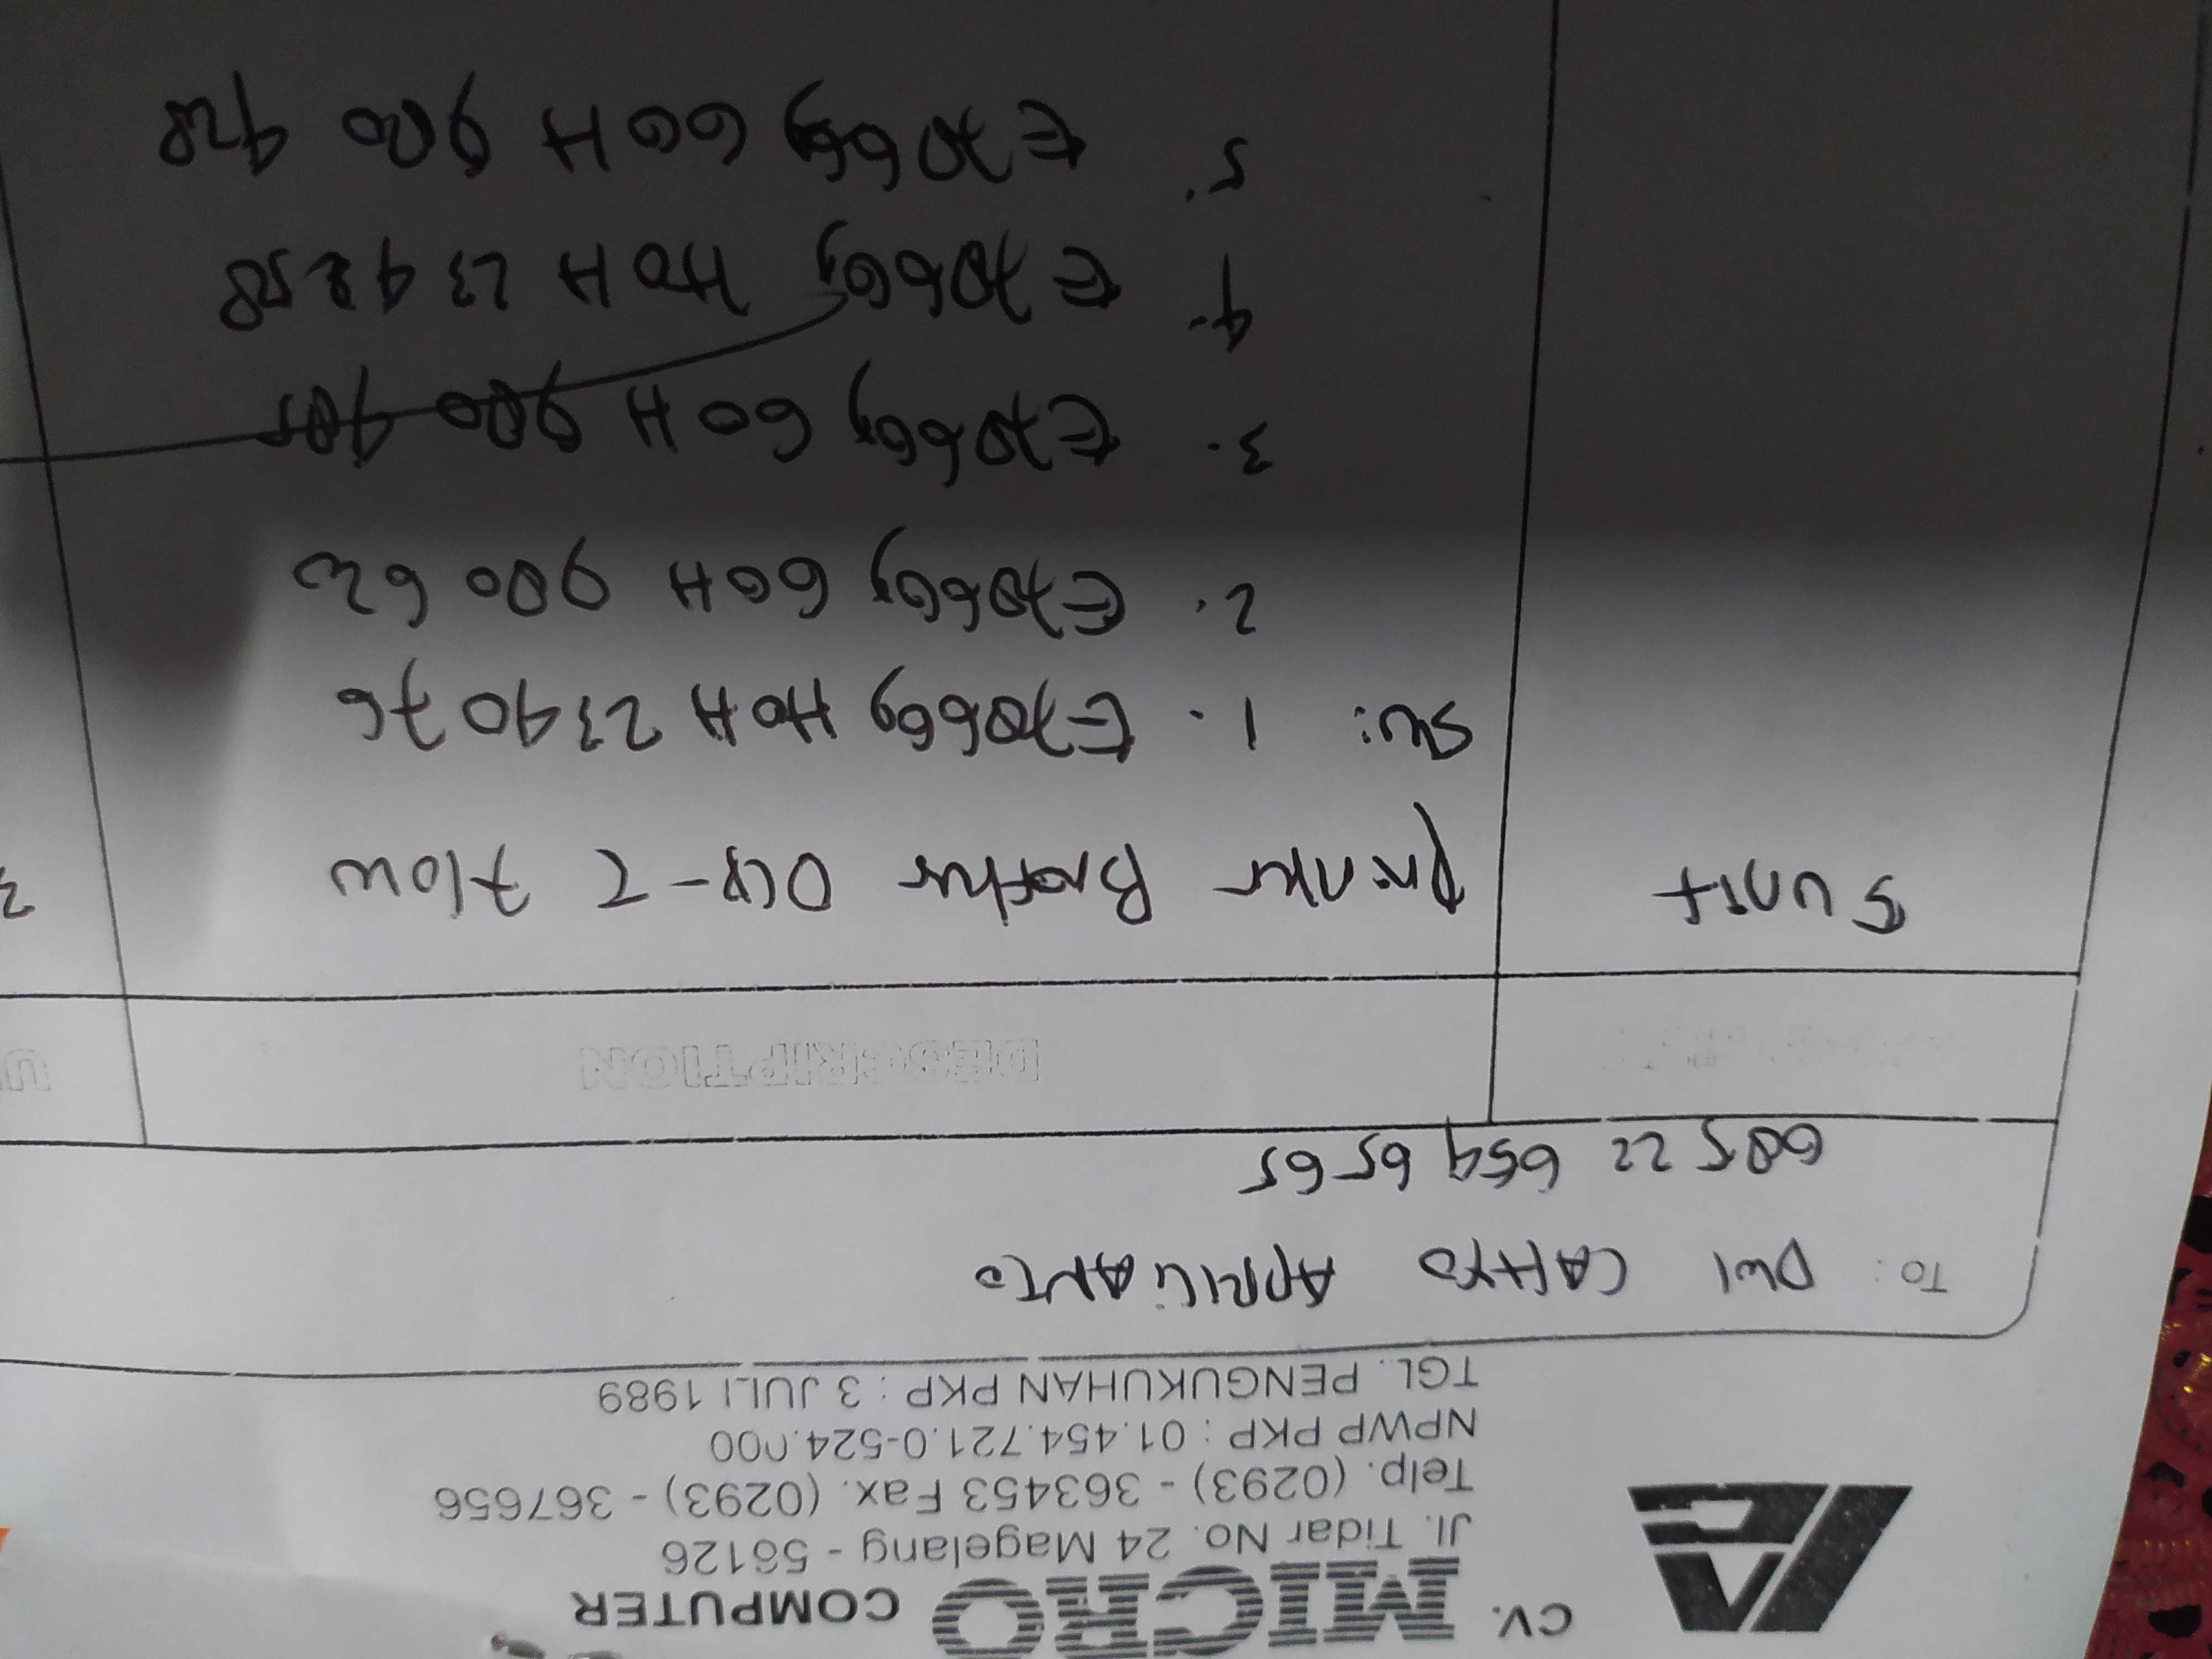 CV. MICRO COMPUTER
Jl. Tidar No. 24 Magelang - 56126
Telp. (0293) - 363453 Fax. (0293) - 367656
NPWP PKP : 01.454.721.0-524.000
TGL. PENGUKUHAN PKP : 3 JULI 1989
TO: DWI CAHYO APRILIANTO
085 22 659 65 65
DESCRIPTION U
5 unit Printer Brother DCP-T 710W
SN: 1. E78669 H0H 2340 76
2. E78669 G0H 900 62
3. E78669 G0H 900 405
4. E78669 H0H 23 4258
5. E78669 G0H 900 428